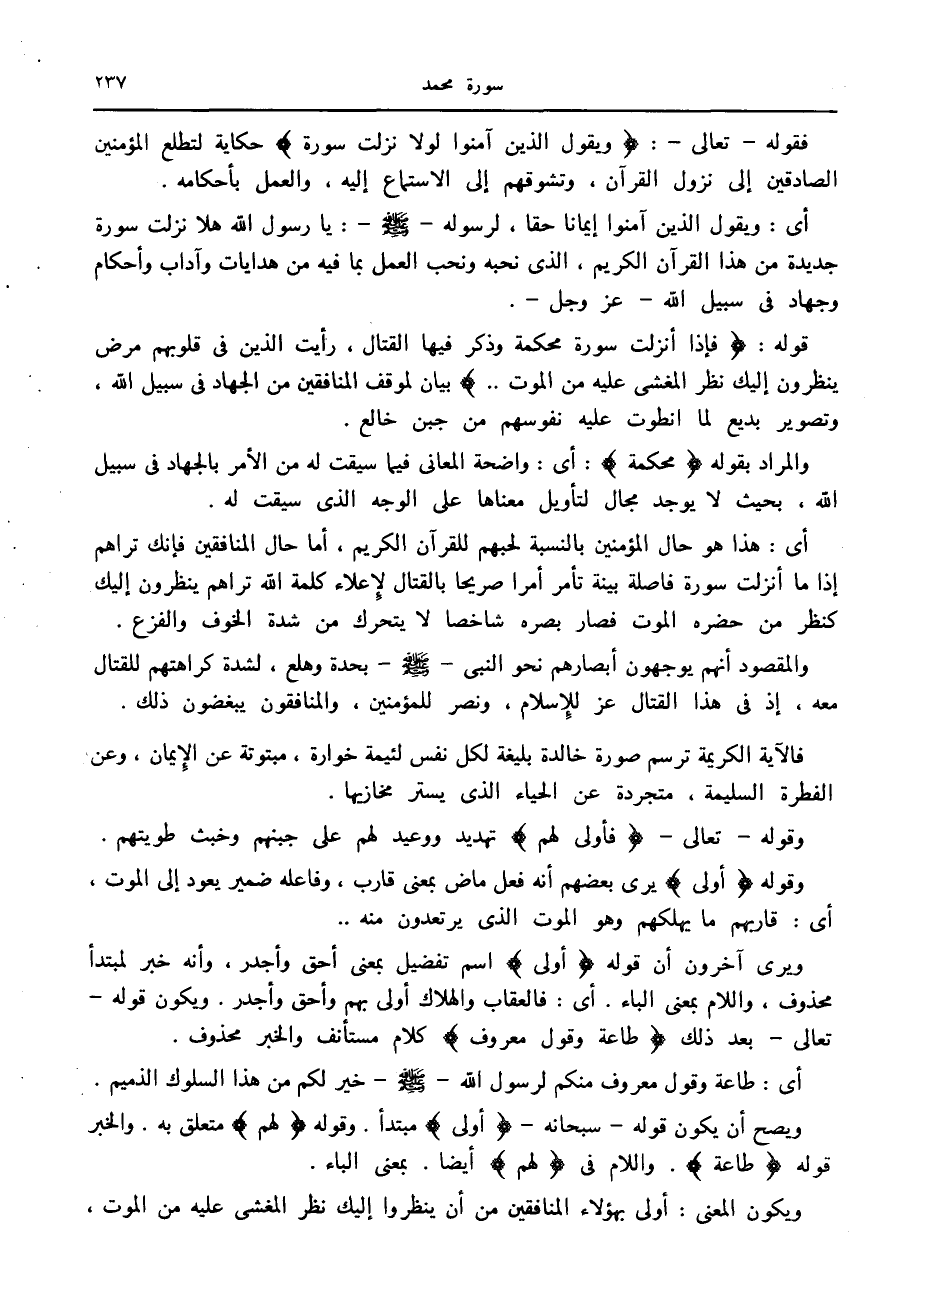 سورة محمد ٢٣٧
فقوله - تعالى - : ﴿ ويقول الذين آمنوا لولا نزلت سورة ﴾ حكاية لتطلع المؤمنين
الصادقين إلى نزول القرآن ، وتشوقهم إلى الاستماع إليه ، والعمل بأحكامه .
أى : ويقول الذين آمنوا إيمانا حقا ، لرسوله - ﷺ - : يا رسول الله هلا نزلت سورة
جديدة من هذا القرآن الكريم ، الذى نحبه ونحب العمل بما فيه من هدايات وآداب وأحكام
وجهاد فى سبيل الله - عز وجل - .
قوله : ﴿ فإذا أنزلت سورة محكمة وذكر فيها القتال ، رأيت الذين فى قلوبهم مرض
ينظرون إليك نظر المغشى عليه من الموت .. ﴾ بيان لموقف المنافقين من الجهاد فى سبيل الله ،
وتصوير بديع لما انطوت عليه نفوسهم من جبن خالع .
والمراد بقوله ﴿ محكمة ﴾ : أى : واضحة المعانى فيما سيقت له من الأمر بالجهاد فى سبيل
الله ، بحيث لا يوجد مجال لتأويل معناها على الوجه الذى سيقت له .
أى : هذا هو حال المؤمنين بالنسبة لحبهم للقرآن الكريم ، أما حال المنافقين فإنك تراهم
إذا ما أنزلت سورة فاصلة بينة تأمر أمرا صريحا بالقتال لإعلاء كلمة الله تراهم ينظرون إليك
كنظر من حضره الموت فصار بصره شاخصا لا يتحرك من شدة الخوف والفزع .
والمقصود أنهم يوجهون أبصارهم نحو النبى - ﷺ - بحدة وهلع ، لشدة كراهتهم للقتال
معه ، إذ فى هذا القتال عز للإسلام ، ونصر للمؤمنين ، والمنافقون يبغضون ذلك .
فالآية الكريمة ترسم صورة خالدة بليغة لكل نفس لئيمة خوارة ، مبتوتة عن الإيمان ، وعن
الفطرة السليمة ، متجردة عن الحياء الذى يستر مخازيها .
وقوله - تعالى - ﴿ فأولى لهم ﴾ تهديد ووعيد لهم على جبنهم وخبث طويتهم .
وقوله ﴿ أولى ﴾ يرى بعضهم أنه فعل ماض بمعنى قارب ، وفاعله ضمير يعود إلى الموت ،
أى : قاربهم ما يهلكهم وهو الموت الذى يرتعدون منه ..
ويرى آخرون أن قوله ﴿ أولى ﴾ اسم تفضيل بمعنى أحق وأجدر ، وأنه خبر لمبتدأ
محذوف ، واللام بمعنى الباء . أى : فالعقاب والهلاك أولى بهم وأحق وأجدر . ويكون قوله -
تعالى - بعد ذلك ﴿ طاعة وقول معروف ﴾ كلام مستأنف والخبر محذوف .
أى : طاعة وقول معروف منكم لرسول الله - ﷺ - خير لكم من هذا السلوك الذميم .
ويصح أن يكون قوله - سبحانه - ﴿ أولى ﴾ مبتدأ . وقوله ﴿ لهم ﴾ متعلق به . والخبر
قوله ﴿ طاعة ﴾ . واللام فى ﴿ لهم ﴾ أيضا . بمعنى الباء .
ويكون المعنى : أولى بهؤلاء المنافقين من أن ينظروا إليك نظر المغشى عليه من الموت ،